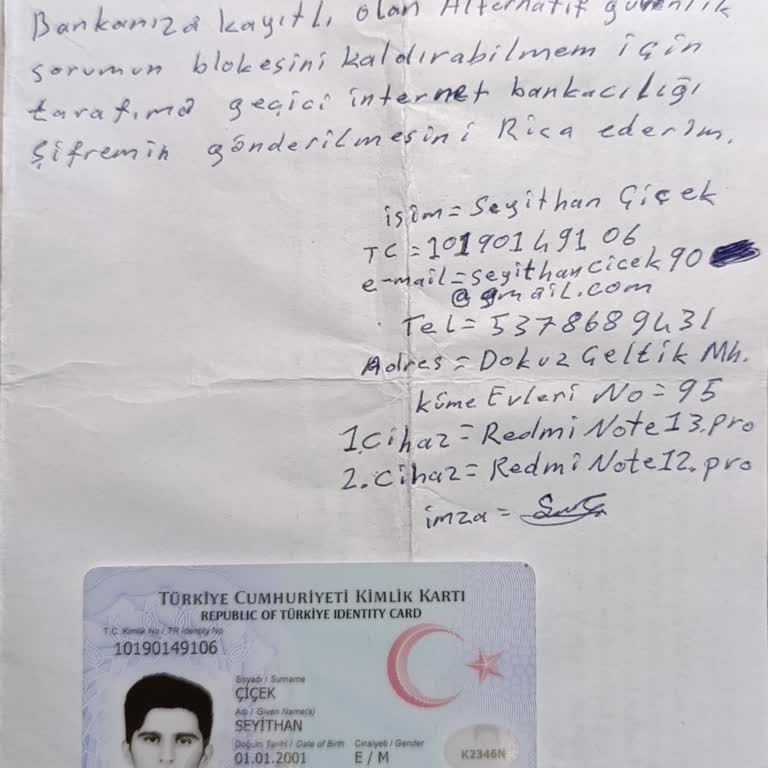 Bankanıza kayıtlı olan Alternatif güvenlik
sorumun blokesini kaldırabilmem için
tarafıma geçici internet bankacılığı
şifremin gönderilmesini Rica ederim.
isim = Seyithan Çiçek
TC = 10190149106
e-mail = seyithancicek90
@gmail.com
Tel = 5378689431
Adres = Dokuz Çeltik Mh.
küme Evleri No = 95
1.Cihaz = Redmi Note 13.pro
2.Cihaz = Redmi Note 12.pro
imza =
TÜRKİYE CUMHURİYETİ KİMLİK KARTI
REPUBLIC OF TÜRKİYE IDENTITY CARD
T.C. Kimlik No / TR Identity No
10190149106
Soyadı / Surname
ÇİÇEK
Adı / Given Name(s)
SEYİTHAN
Doğum Tarihi / Date of Birth Cinsiyeti / Gender
01.01.2001 E / M
K2346N